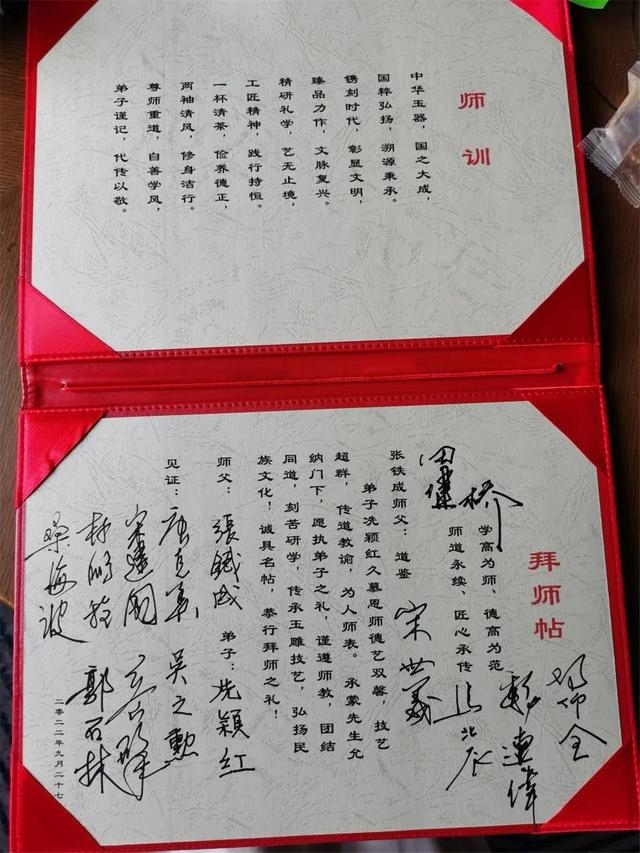 师训
中华玉器，国之大成，
国粹弘扬，溯源秉承。
镌刻时代，彰显文明，
臻品力作，文脉复兴。
精研礼学，艺无止境，
工匠精神，践行持恒。
一杯清茶，俭养德正，
两袖清风，修身洁行。
尊师重道，自善学风，
弟子谨记，代传以敬。
拜师帖
学高为师、德高为范
师道永续、匠心承传
田健桥
张铁成师父：道鉴
宋世義
弟子冼颖红久慕恩师德艺双馨，技艺
超群，传道教谕，为人师表。承蒙先生允
纳门下，愿执弟子之礼，谨遵师教，团结
同道，刻苦研学，传承玉雕技艺，弘扬民
族文化！诚具名帖，恭行拜师之礼！
师父：張鐵成 弟子：冼颖红
见证：
吴之勳
宋建国
郭石林
二零二二年九月二十七